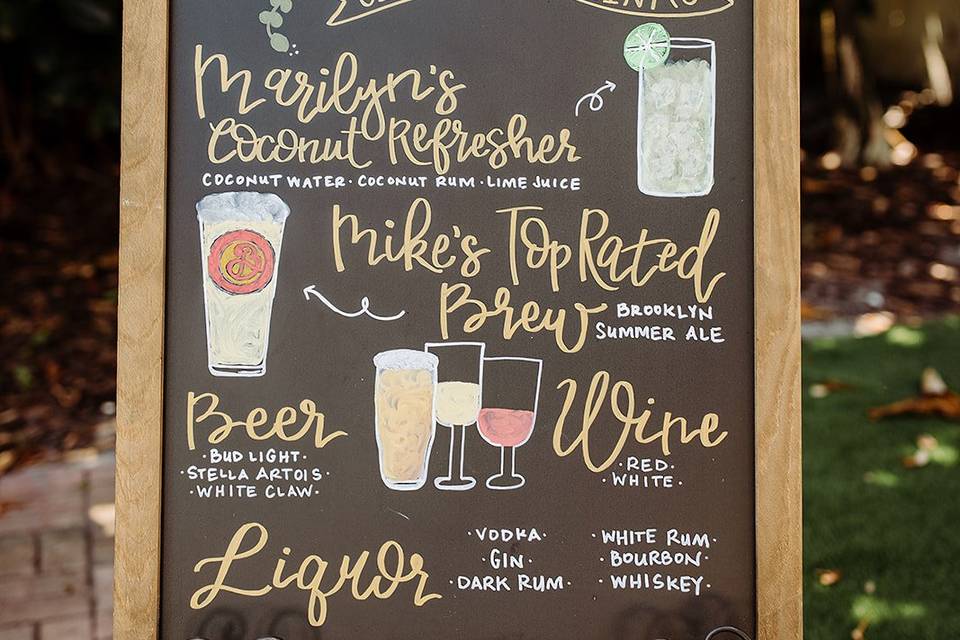 Marilyn's
Coconut Refresher
COCONUT WATER · COCONUT RUM · LIME JUICE
Mike's Top Rated
Brew
BROOKLYN
SUMMER ALE
B
Beer
· BUD LIGHT ·
· STELLA ARTOIS ·
· WHITE CLAW ·
Wine
· RED ·
· WHITE ·
Liquor
· VODKA ·
· GIN ·
· DARK RUM ·
· WHITE RUM ·
· BOURBON ·
· WHISKEY ·